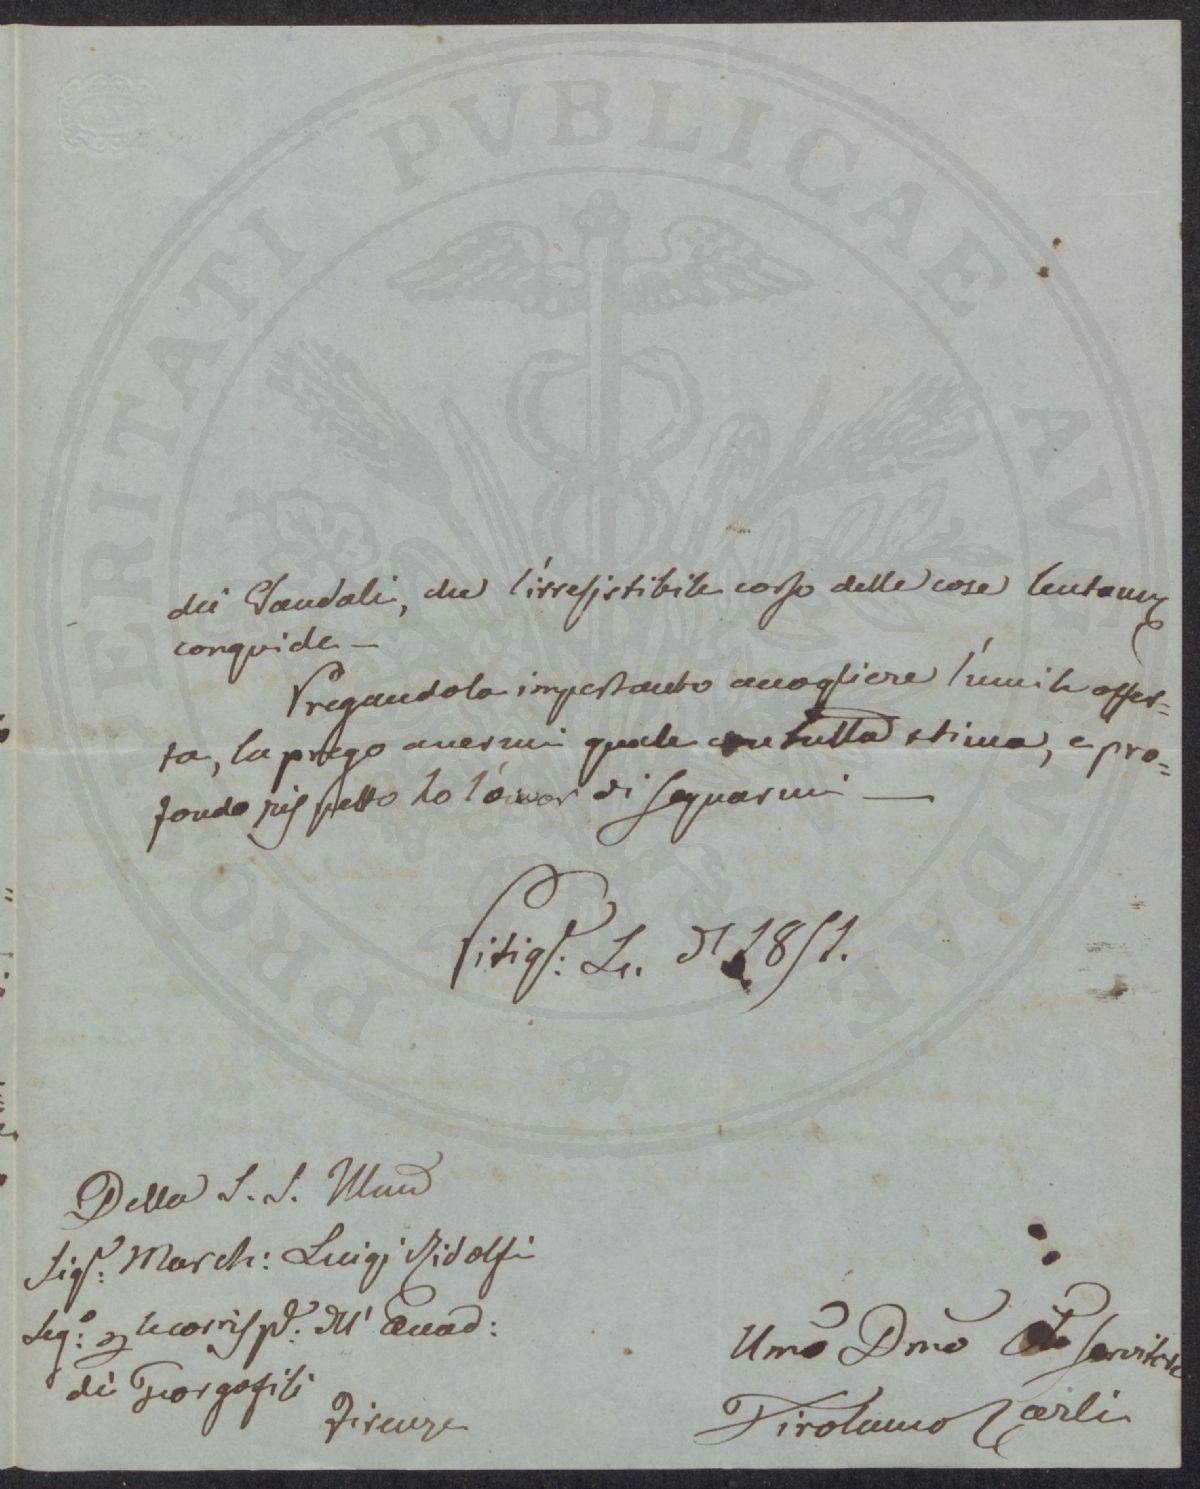 PROSPERITATI PVBLICAE AVGENDAE
dei Vandali, che l'irresistibile corso delle cose lentam
conquide —
Pregandola impertanto accogliere l'umile offer=
ta, la prego avermi quale con tutta stima, e pro=
fondo rispetto ho l'onor di segnarmi —
Pitigl: Li. 1851.
Della S. S. Illma
Sigr: March: Luigi Ridolfi
Seg: corrisp: dell' Accad:
dei Georgofili
Firenze
Umo Dmo Servitore
Girolamo Carli